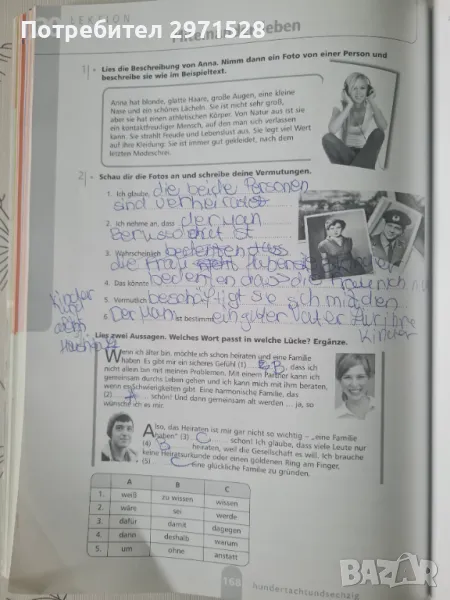 Потребител 2971528
LEKTION
1 Lies die Beschreibung von Anna. Nimm dann ein Foto von einer Person und
beschreibe sie wie im Beispieltext.
Anna hat blonde, glatte Haare, große Augen, eine kleine
Nase und ein schönes Lächeln. Sie ist nicht sehr groß,
aber sie hat einen athletischen Körper. Von Natur aus ist sie
ein kontaktfreudiger Mensch, auf den man sich verlassen
kann. Sie strahlt Freude und Lebenslust aus. Sie legt viel Wert
auf ihre Kleidung: Sie ist immer gut gekleidet, nach dem
letzten Modeschrei.
2 Schau dir die Fotos an und schreibe deine Vermutungen.
1. Ich glaube, die beide Personen
sind verheiratet
2. Ich nehme an, dass der man
ist
3. Wahrscheinlich
die Frau
4. Das könnte bedeuten das die Frau ich
5. Vermutlich beschäftigt sie sich mit den
Kinder
6. Der Mann ist bestimmt ein guten Vater für ihre
Kinder
Lies zwei Aussagen. Welches Wort passt in welche Lücke? Ergänze.
Wenn ich älter bin, möchte ich schon heiraten und eine Familie
haben. Es gibt mir ein sicheres Gefühl (1) B, dass ich
nicht allein bin mit meinen Problemen. Mit einem Partner kann ich
gemeinsam durchs Leben gehen und ich kann mich mit ihm beraten,
wenn es Schwierigkeiten gibt. Eine harmonische Familie, das
(2) A schön! Und dann gemeinsam alt werden ... ja, so
wünsche ich es mir.
Also, das Heiraten ist mir gar nicht so wichtig – „eine Familie
haben" (3) C schon! Ich glaube, dass viele Leute nur
(4) B heiraten, weil die Gesellschaft es will. Ich brauche
keine Heiratsurkunde oder einen goldenen Ring am Finger,
(5) C eine glückliche Familie zu gründen.
A B C
1. weiß zu wissen wissen
2. wäre sei werde
3. dafür damit dagegen
4. denn deshalb warum
5. um ohne anstatt
168 hundertachtundsechzig
BAZAR